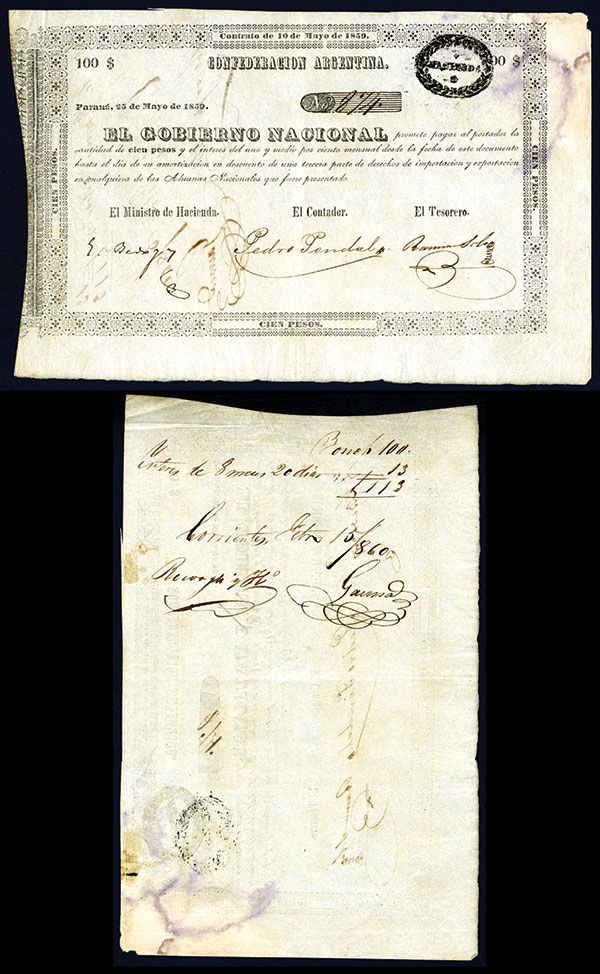 Contrato de 10 de Mayo de 1859.
100 $ CONFEDERACION ARGENTINA. 00 $
HACIENDA
Paraná, 25 de Mayo de 1859. No 174
EL GOBIERNO NACIONAL promete pagar al portador la
cantidad de cien pesos y el interes del uno y medio por ciento mensual desde la fecha de este documento
hasta el dia de su amortizacion en descuento de una tercera parte de derechos de importacion y exportacion
en cualquiera de las Aduanas Nacionales que fuere presentado.
CIEN PESOS.
CIEN PESOS.
El Ministro de Hacienda. El Contador. El Tesorero.
Pedro
CIEN PESOS.
100.
Interes de 8 meses 20 dias 13
113
Corrientes, 15/860